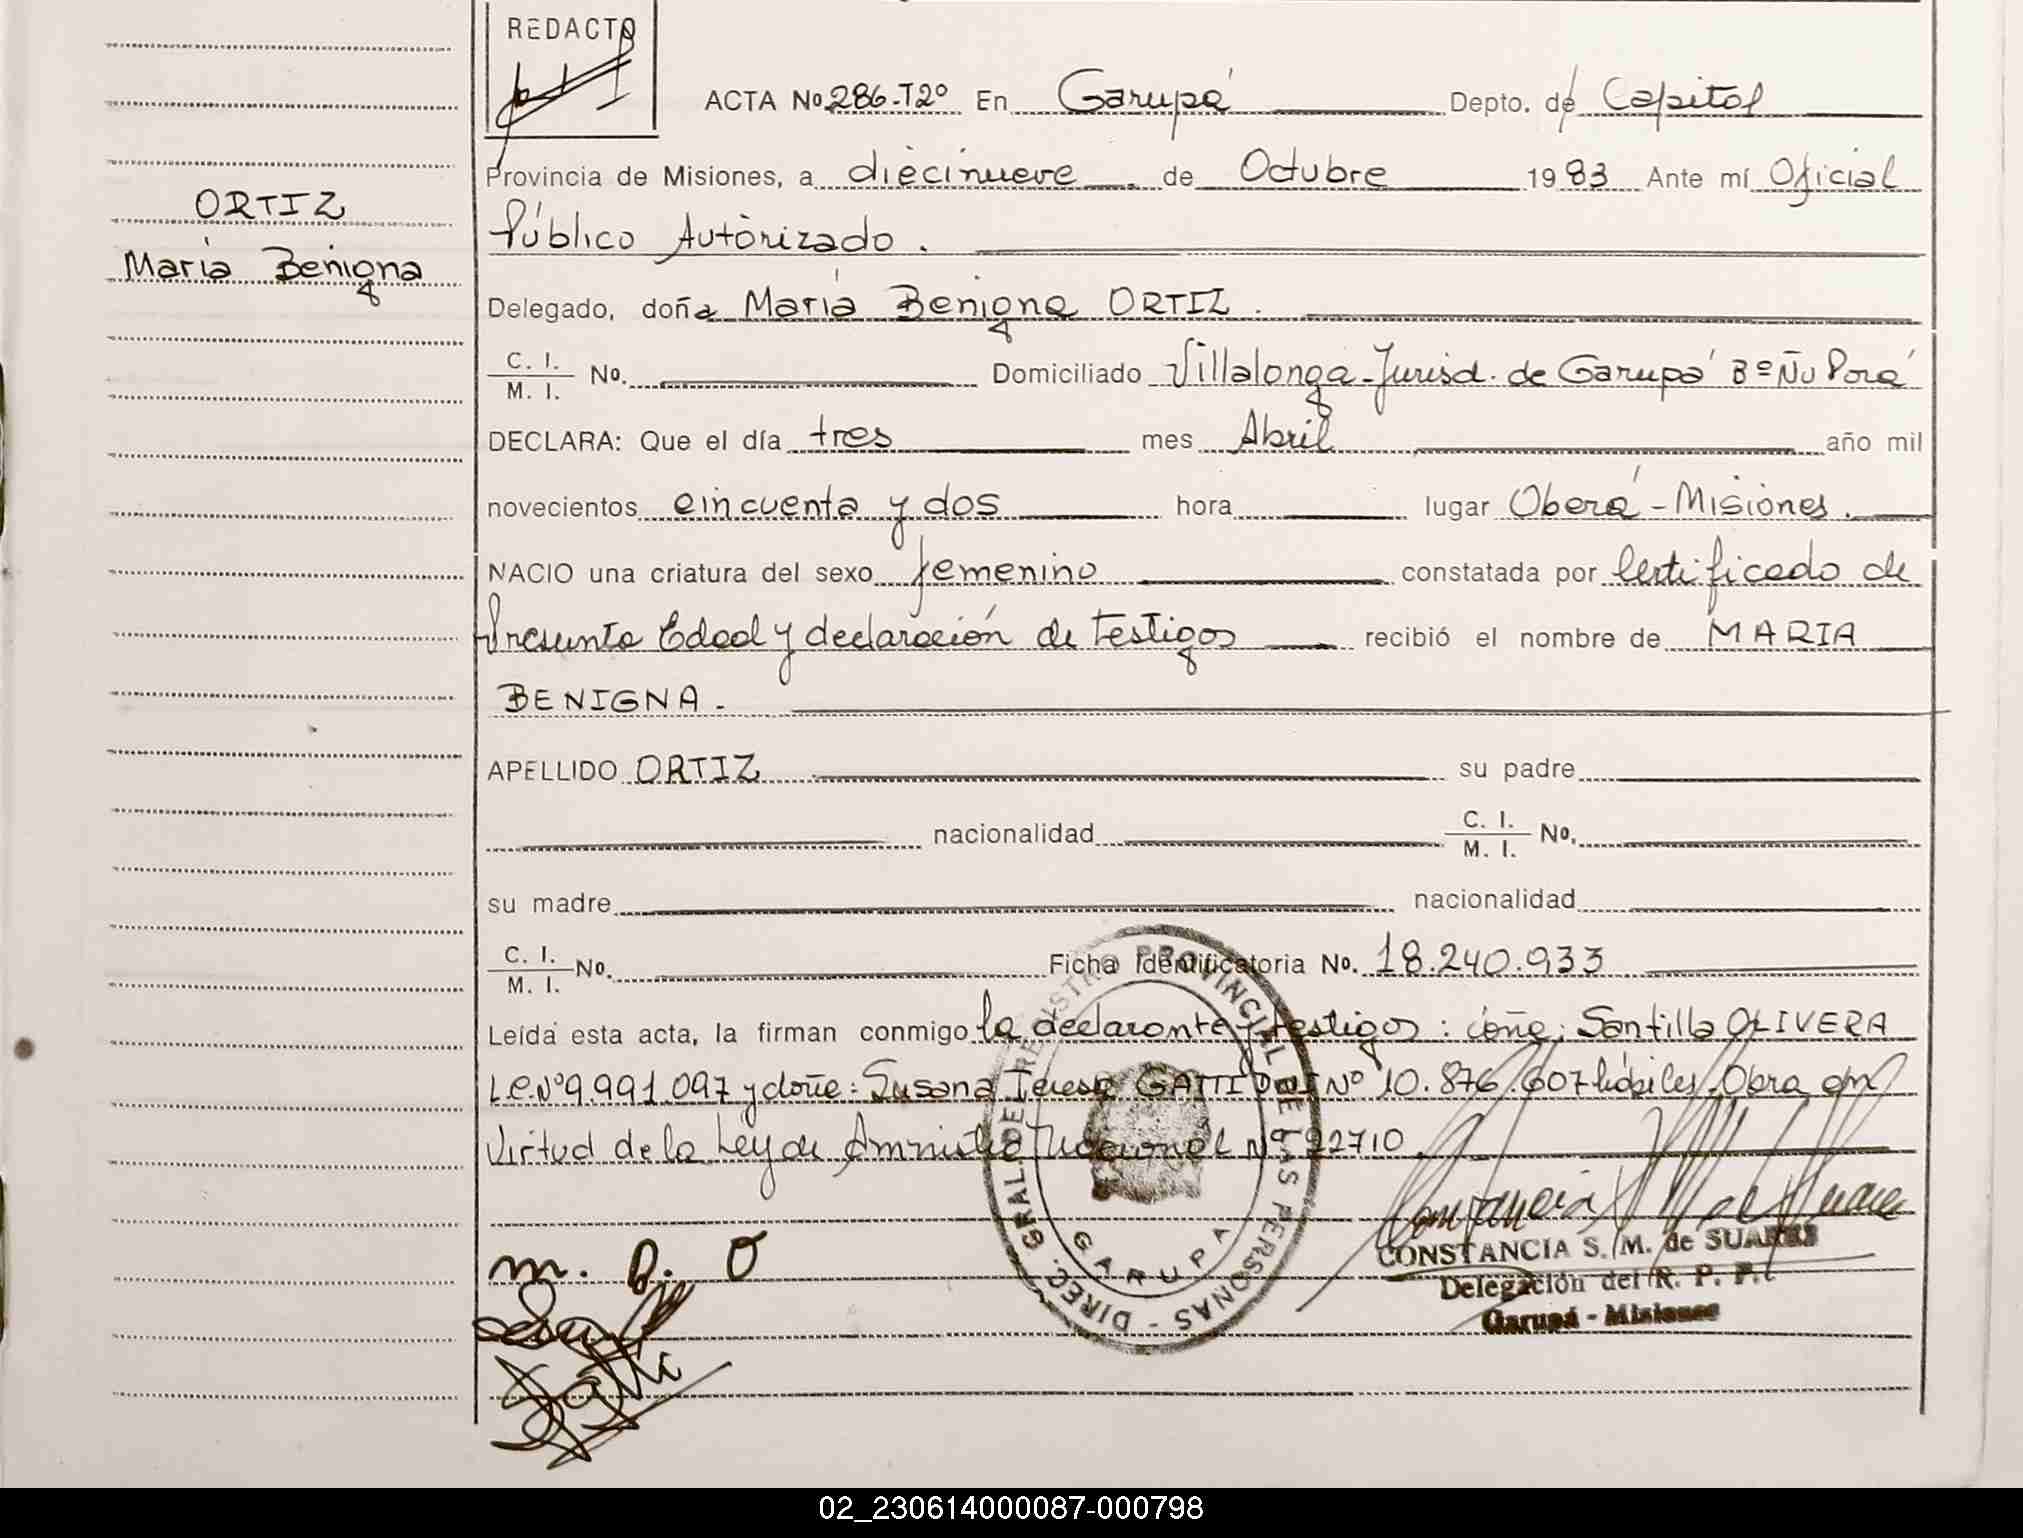 REDACTO
ACTA No. 286-T2º En Garupá Depto. de Capital
Provincia de Misiones, a diecinueve de Octubre 1983 Ante mí Oficial
Público Autorizado.
ORTIZ
María Benigna
Delegado, doña María Benigna ORTIZ.
C. I.
M. I. No. Domiciliado Villalonga-Jurisd. de Garupá Bº Ñu Porá
DECLARA: Que el día tres mes Abril año mil
novecientos cincuenta y dos hora lugar Oberá - Misiones.
NACIO una criatura del sexo femenino constatada por Certificado de
Presunta Edad y declaración de testigos recibió el nombre de MARIA
BENIGNA.
APELLIDO ORTIZ su padre
nacionalidad C. I.
M. I. No.
su madre nacionalidad
C. I.
M. I. No. Ficha Identificatoria No. 18.240.933
Leída esta acta, la firman conmigo la declarante y testigos: doña: Santilla OLIVERA
L.C.Nº 9.991.097 y doña: Susana Teresa GATTI DNI Nº 10.876.607 hábiles. Obra en
Virtud de la Ley de Amnistía Nacional Nº 22710
m. B. O
DIREC. GRAL. DE REGISTRO PROVINCIAL DE LAS PERSONAS -
GARUPA
CONSTANCIA S. M. de SUARES
Delegación del R. P. P.
Garupá - Misiones
02_230614000087-000798